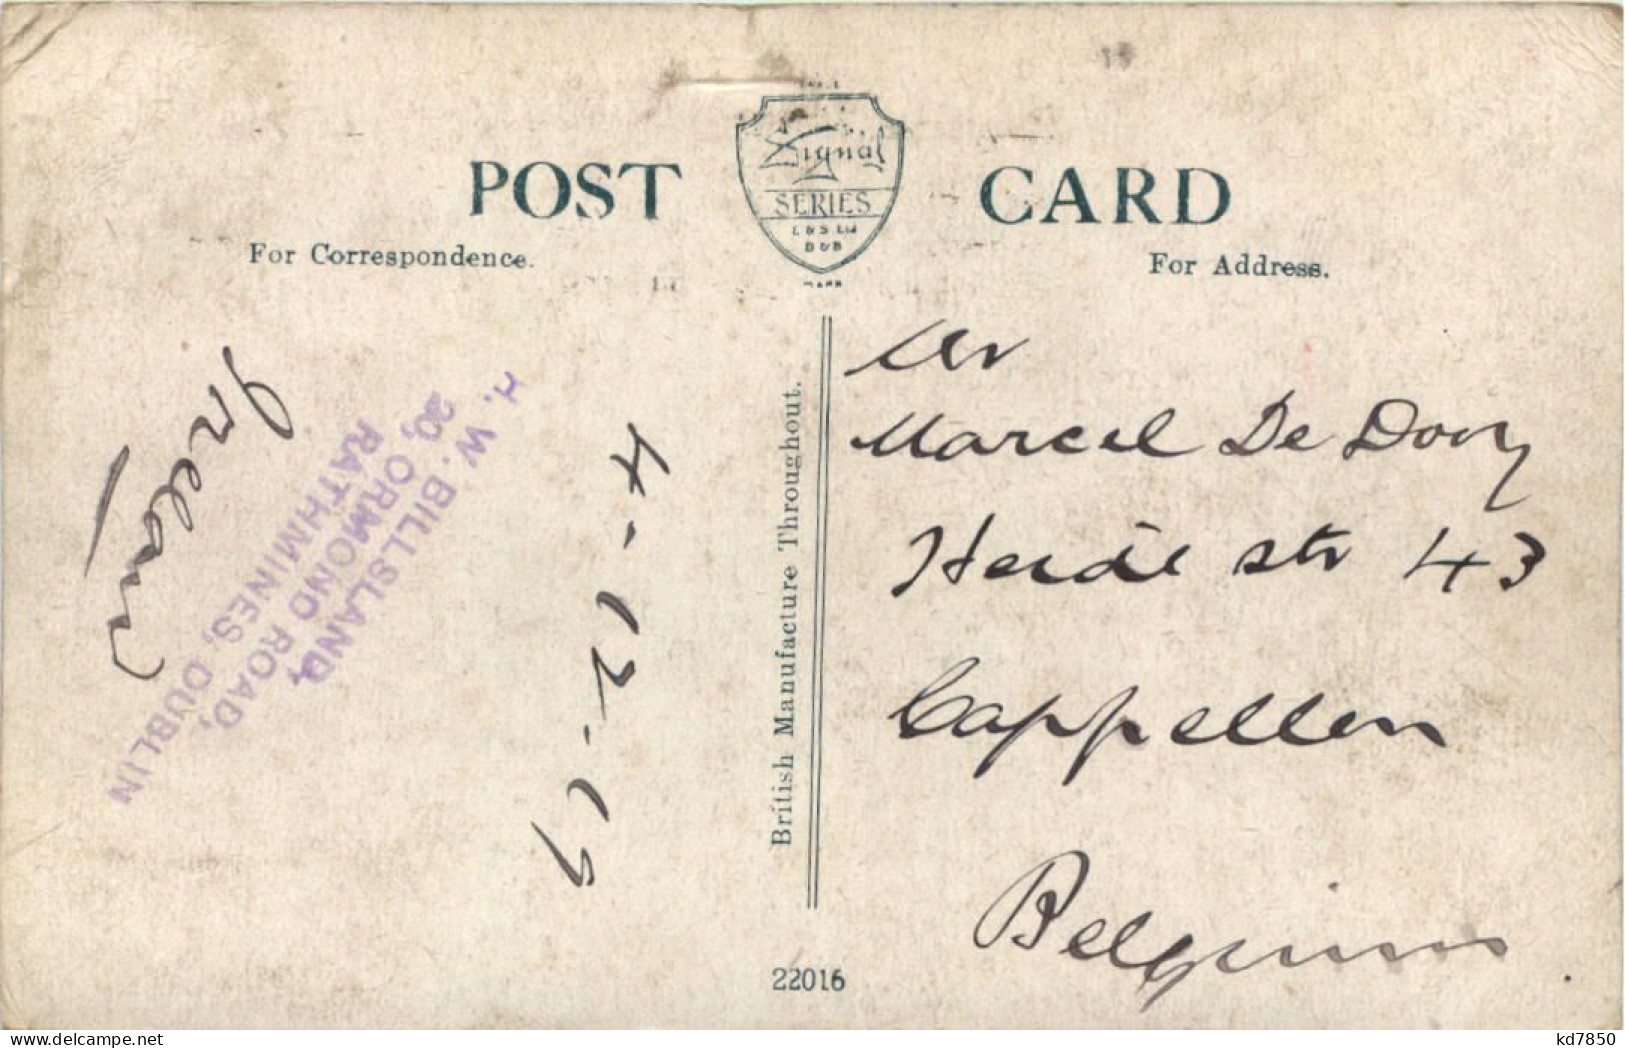 POST CARD
Signal
SERIES
E & S Ltd
D & B
MARK
For Correspondence.
For Address.
Ireland
H. W. BILLSLAND,
20, ORMOND ROAD,
RATHMINES, DUBLIN
4-12-19
British Manufacture Throughout.
Mr
Marcel De Dooy
Heide str 43
Cappellen
Belgium
22016
delcampe.net
kd7850